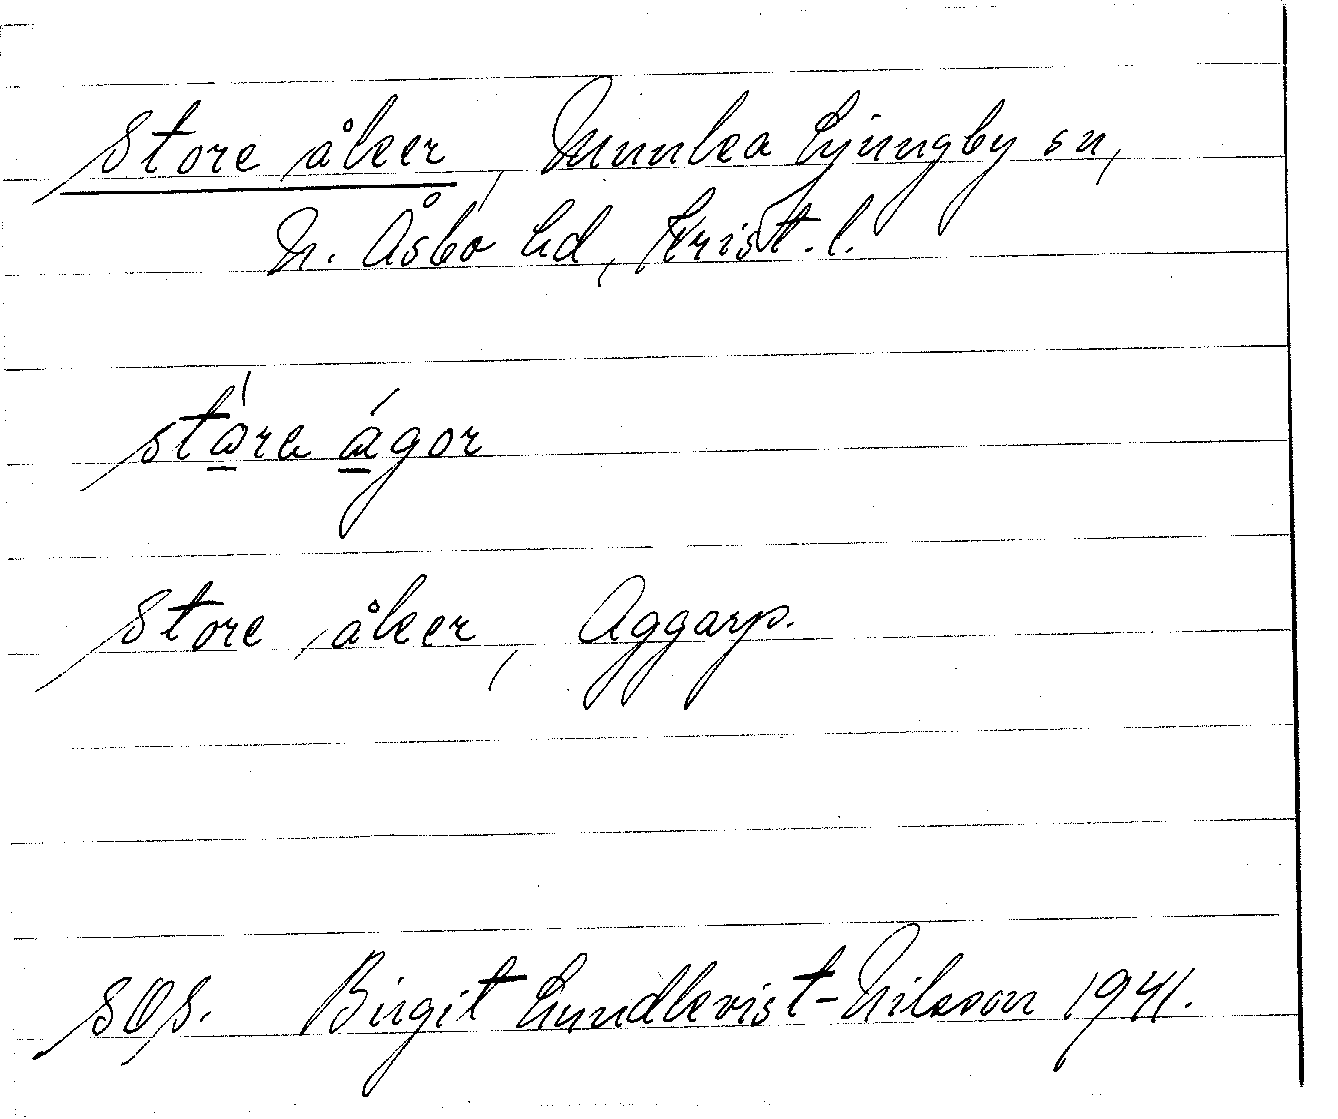 Store åker, Munka Ljungby sn,
N. Åsbo hd, Krist. l.
stóre ágor
Store åker, Aggarp.
SOS. Birgit Lundkvist-Nilsson 1941.